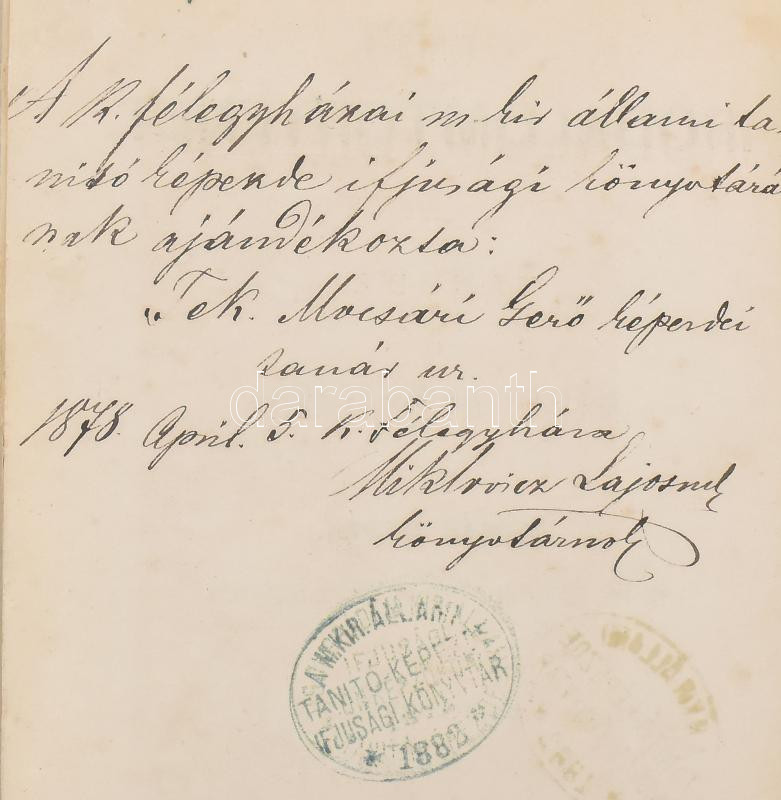 A K. félegyházai m. kir állami ta-
nitó képezde ifjusági könyvtárá
nak ajándékozta:
„Tek. Mocsári Gerő képezdei
tanár ur.
darabanth
1878. April. 5. K. Félegyháza
Miklovicz Lajos
könyvtárnok
A M. KIR. ÁLL.
TANITO-KÉP
IFJUSÁGI KÖNYVTÁR
* 1882 *